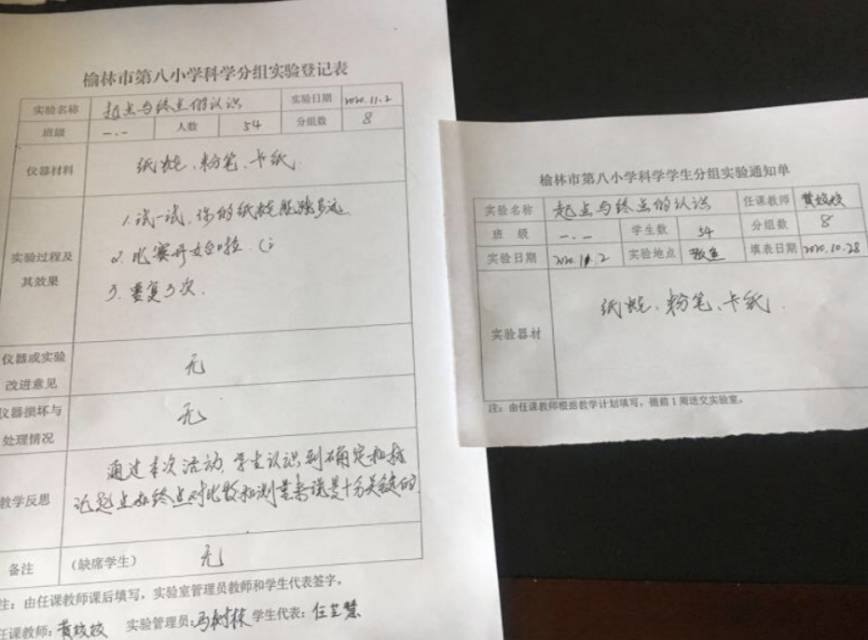 榆林市第八小学科学分组实验登记表
实验名称 起点与终点的认识 实验日期 2020.11.2
班级 一.一 人数 54 分组数 8
仪器材料 纸蛙、粉笔、卡纸.
1.试一试,你的纸蛙能跳多远
2.比赛开始啦.
实验过程及
其效果
3.重复3次.
仪器或实验
改进意见 无
仪器损坏与
处理情况 无
通过本次活动,学生认识到确定和标
记起点和终点对比较和测量来说是十分关键的
教学反思
备注 (缺席学生) 无
注:由任课教师课后填写,实验室管理员教师和学生代表签字。
任课教师:黄 实验管理员: 学生代表:
榆林市第八小学科学学生分组实验通知单
实验名称 起点与终点的认识 任课教师 黄
班 级 一.一 学生数 54 分组数 8
实验日期 2020.11.2 实验地点 教室 填表日期 2020.10.28
实验器材 纸蛙、粉笔、卡纸.
注:由任课教师根据教学计划填写,提前1周送交实验室。